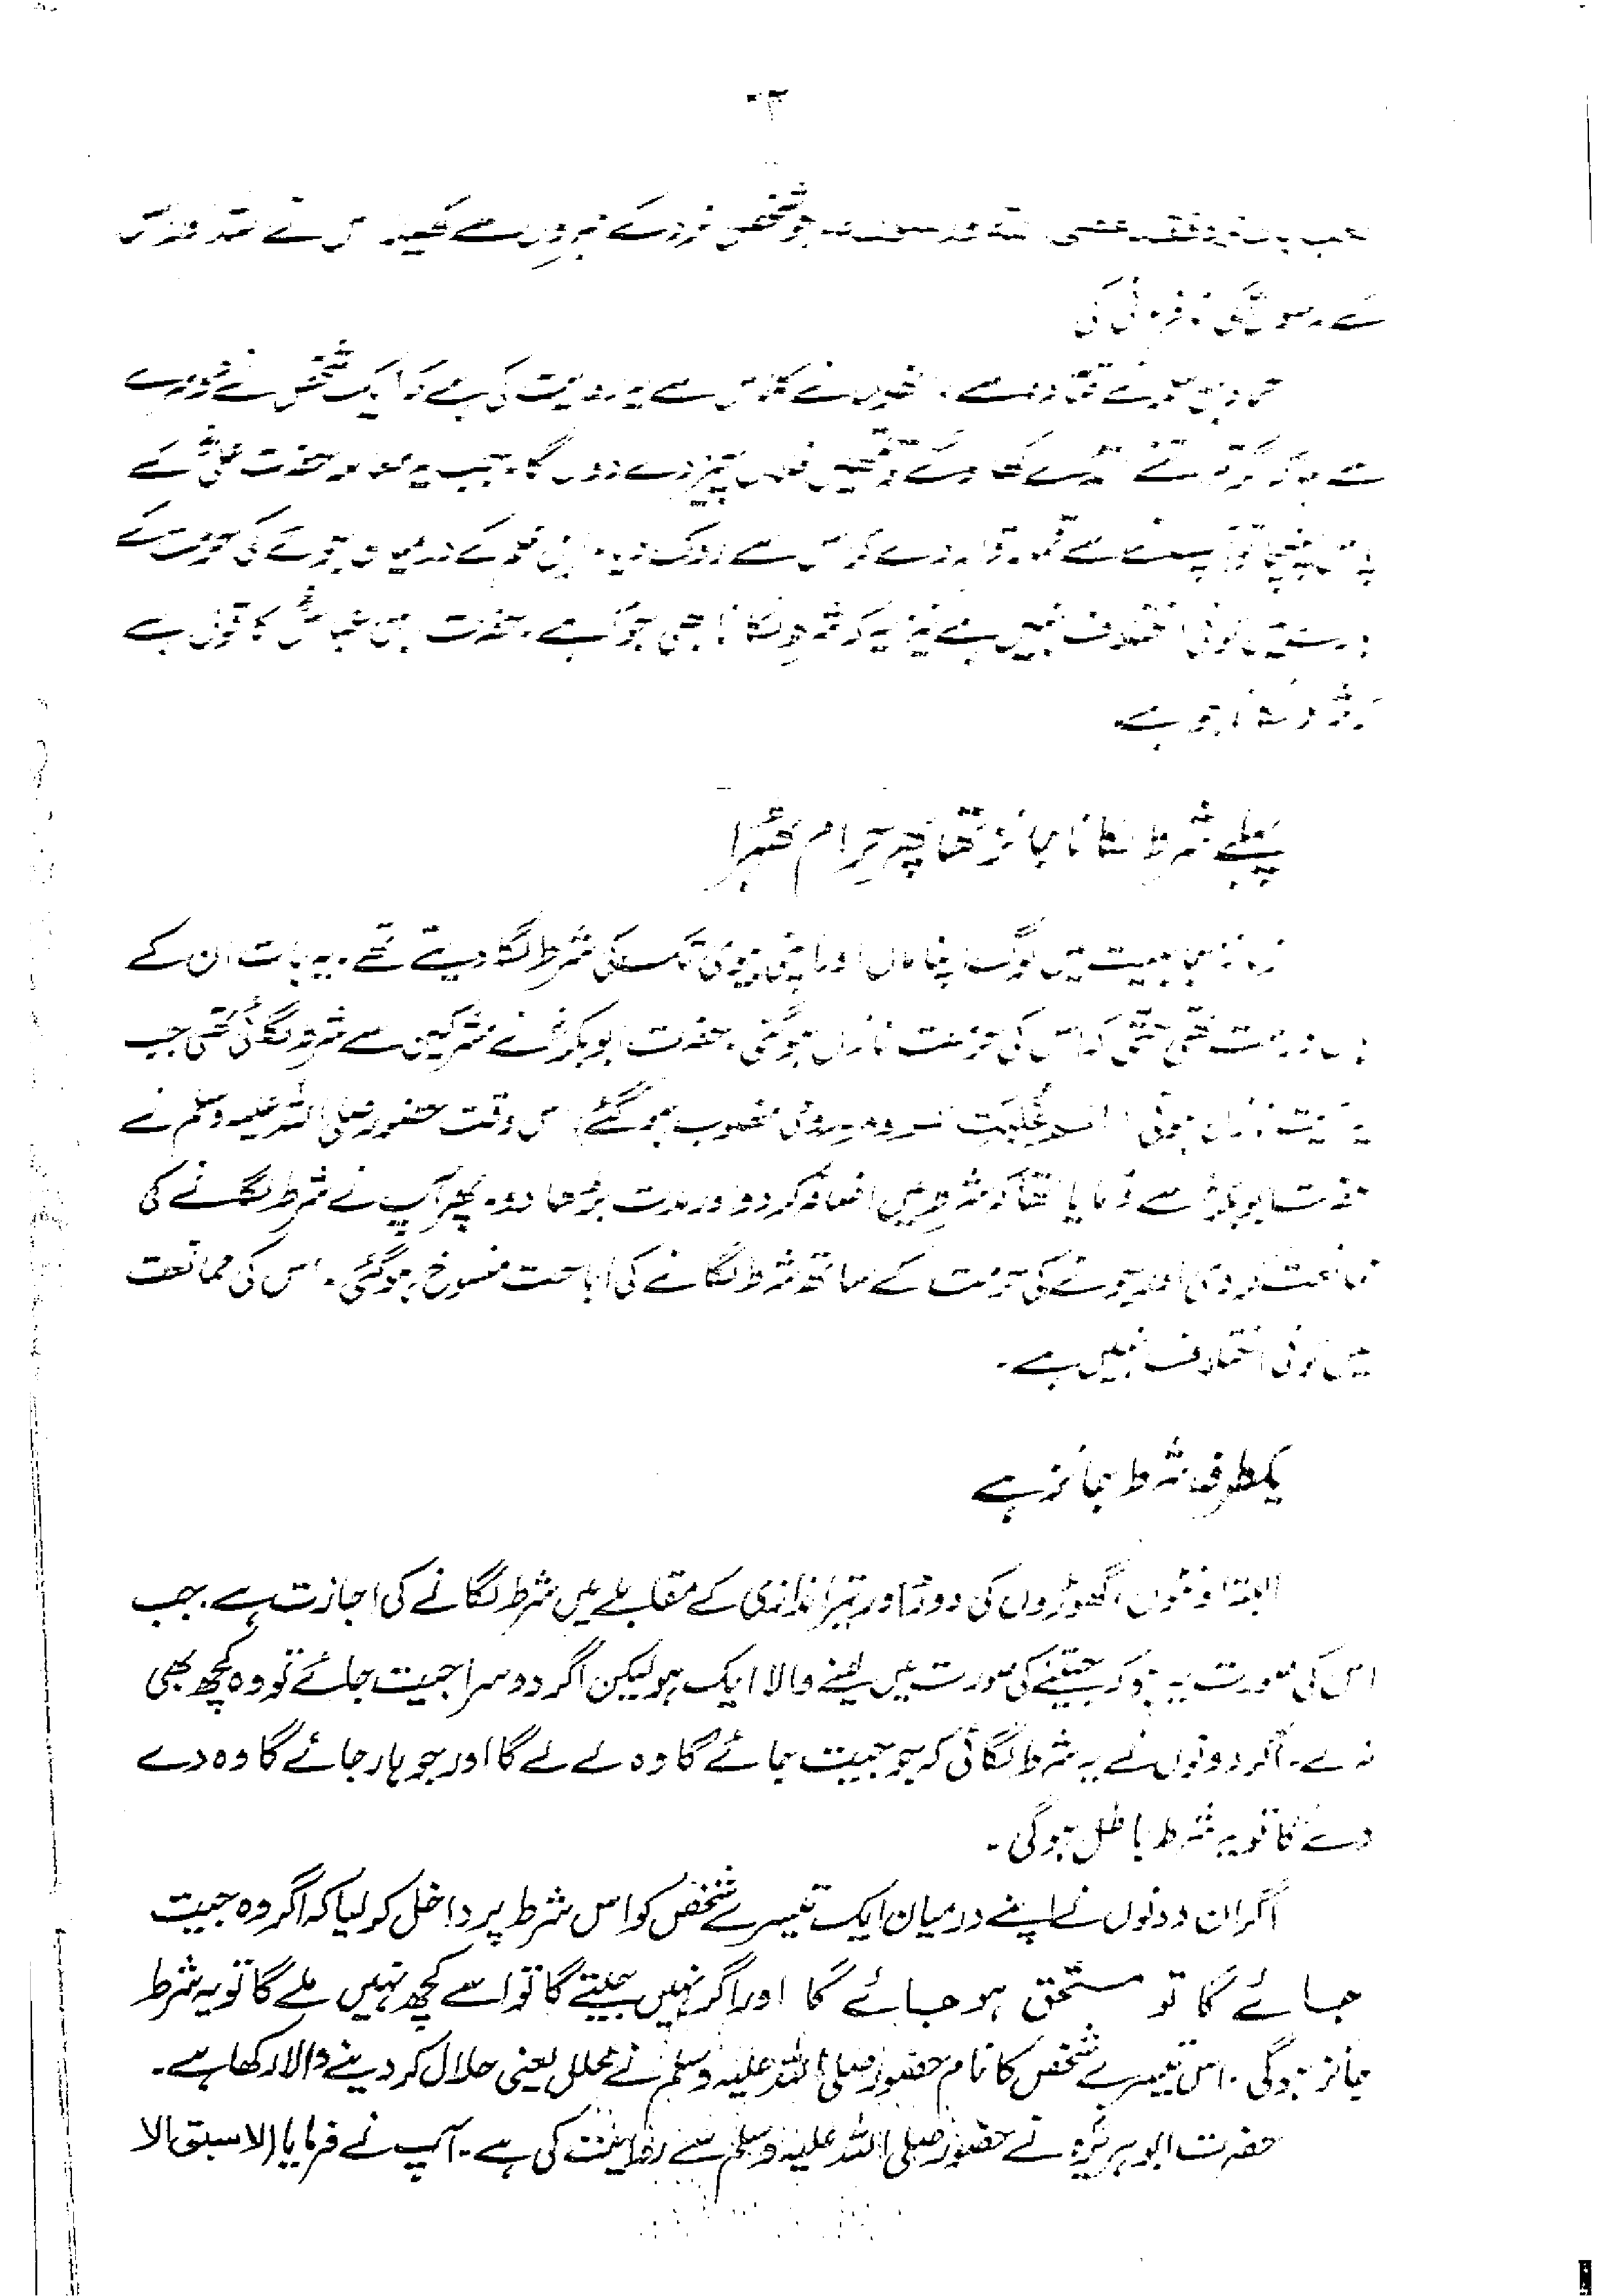 جو شخص نرد کے
کی نافرمانی کی
نے قتادہ سے، انہوں نے خلاس سے یہ روایت کی ہے کہ ایک شخص نے دوسرے
سے کہا کہ اگر تو نے اتنے انڈے کھا لیے تو تمہیں فلاں چیز دے دوں گا۔ جب یہ معاملہ حضرت علیؓ کے
پاس پہنچا تو آپ نے اسے قمار قرار دے کر اس سے روک دیا۔ اہل علم کے درمیان جوئے کی حرمت کے
بارے میں کوئی اختلاف نہیں ہے نیز یہ کہ شرط لگانا بھی جوا ہے۔ حضرت ابن عباسؓ کا قول ہے
کہ شرط لگانا جوا ہے۔
پہلے شرط لگانا جائز تھا پھر حرام ٹھہرا
زمانہ جاہلیت میں لوگ اپنا مال اور اپنی بیوی تک کی شرط لگا دیتے تھے۔ یہ بات ان کے
ہاں درست تھی حتیٰ کہ اس کی حرمت نازل ہوگئی۔ حضرت ابوبکرؓ نے مشرکین سے شرط لگائی تھی جب
یہ آیت نازل ہوئی (الٓمّٓ غُلِبَتِ الرُّوْمُ رومی مغلوب ہوگئے) اس وقت حضور صلی اللہ علیہ وسلم نے
حضرت ابوبکرؓ سے فرمایا تھا کہ شرط میں اضافہ کر دو اور مدت بڑھا دو۔ پھر آپ نے شرط لگانے کی
ممانعت کر دی اور جوئے کی حرمت کے ساتھ شرط لگانے کی اباحت منسوخ ہوگئی۔ اس کی ممانعت
میں کوئی اختلاف نہیں ہے۔
یکطرفہ شرط جائز ہے
البتہ اونٹوں، گھوڑوں کی دوڑ اور تیراندازی کے مقابلے میں شرط لگانے کی اجازت ہے۔ جب
اس کی صورت یہ ہو کہ جیتنے کی صورت میں لینے والا ایک ہو لیکن اگر دوسرا جیت جائے تو وہ کچھ بھی
نہ لے۔ اگر دونوں نے یہ شرط لگائی کہ جو جیت جائے گا وہ لے لے گا اور جو ہار جائے گا وہ دے
دے گا تو یہ شرط باطل ہوگی۔
اگر ان دونوں نے اپنے درمیان ایک تیسرے شخص کو اس شرط پر داخل کر لیا کہ اگر وہ جیت
جائے گا تو مستحق ہو جائے گا اور اگر نہیں جیتے گا تو اسے کچھ نہیں ملے گا تو یہ شرط
جائز ہوگی۔ اس تیسرے شخص کا نام حضور صلی اللہ علیہ وسلم نے محلل یعنی حلال کر دینے والا رکھا ہے۔
حضرت ابوہریرہؓ نے حضور صلی اللہ علیہ وسلم سے روایت کی ہے۔ آپ نے فرمایا (لا سبق الا